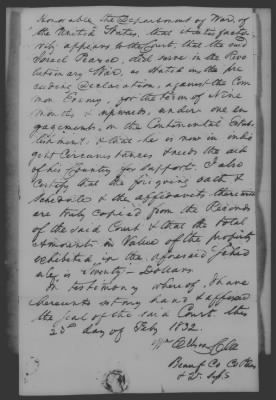 Honorable the Department of War, of
the United States, that it satisfac-
rily appears to the Court, that the said
Israel Pearce, did serve in the Revo-
lutionary War, as stated in the pre
ceding Declaration, against the Com
mon Enemy, for the term of Nine
months & upwards, under one en
gagement, on the Continental Estab-
lishment; & that he is now in indi
gent Circumstances & needs the aid
of his Country for Support. I also
certify that the foregoing oath &
schedule & the affidavits thereunto
are truly copied from the Records
of the said Court & that the total
Amount in Value of the property
exhibited in the aforesaid sched
ule, is Twenty - Dollars.
In testimony whereof, I have
hereunto set my hand & affixed
the seal of the said Court, this
25th day of Feby 1832.
Beauf Co